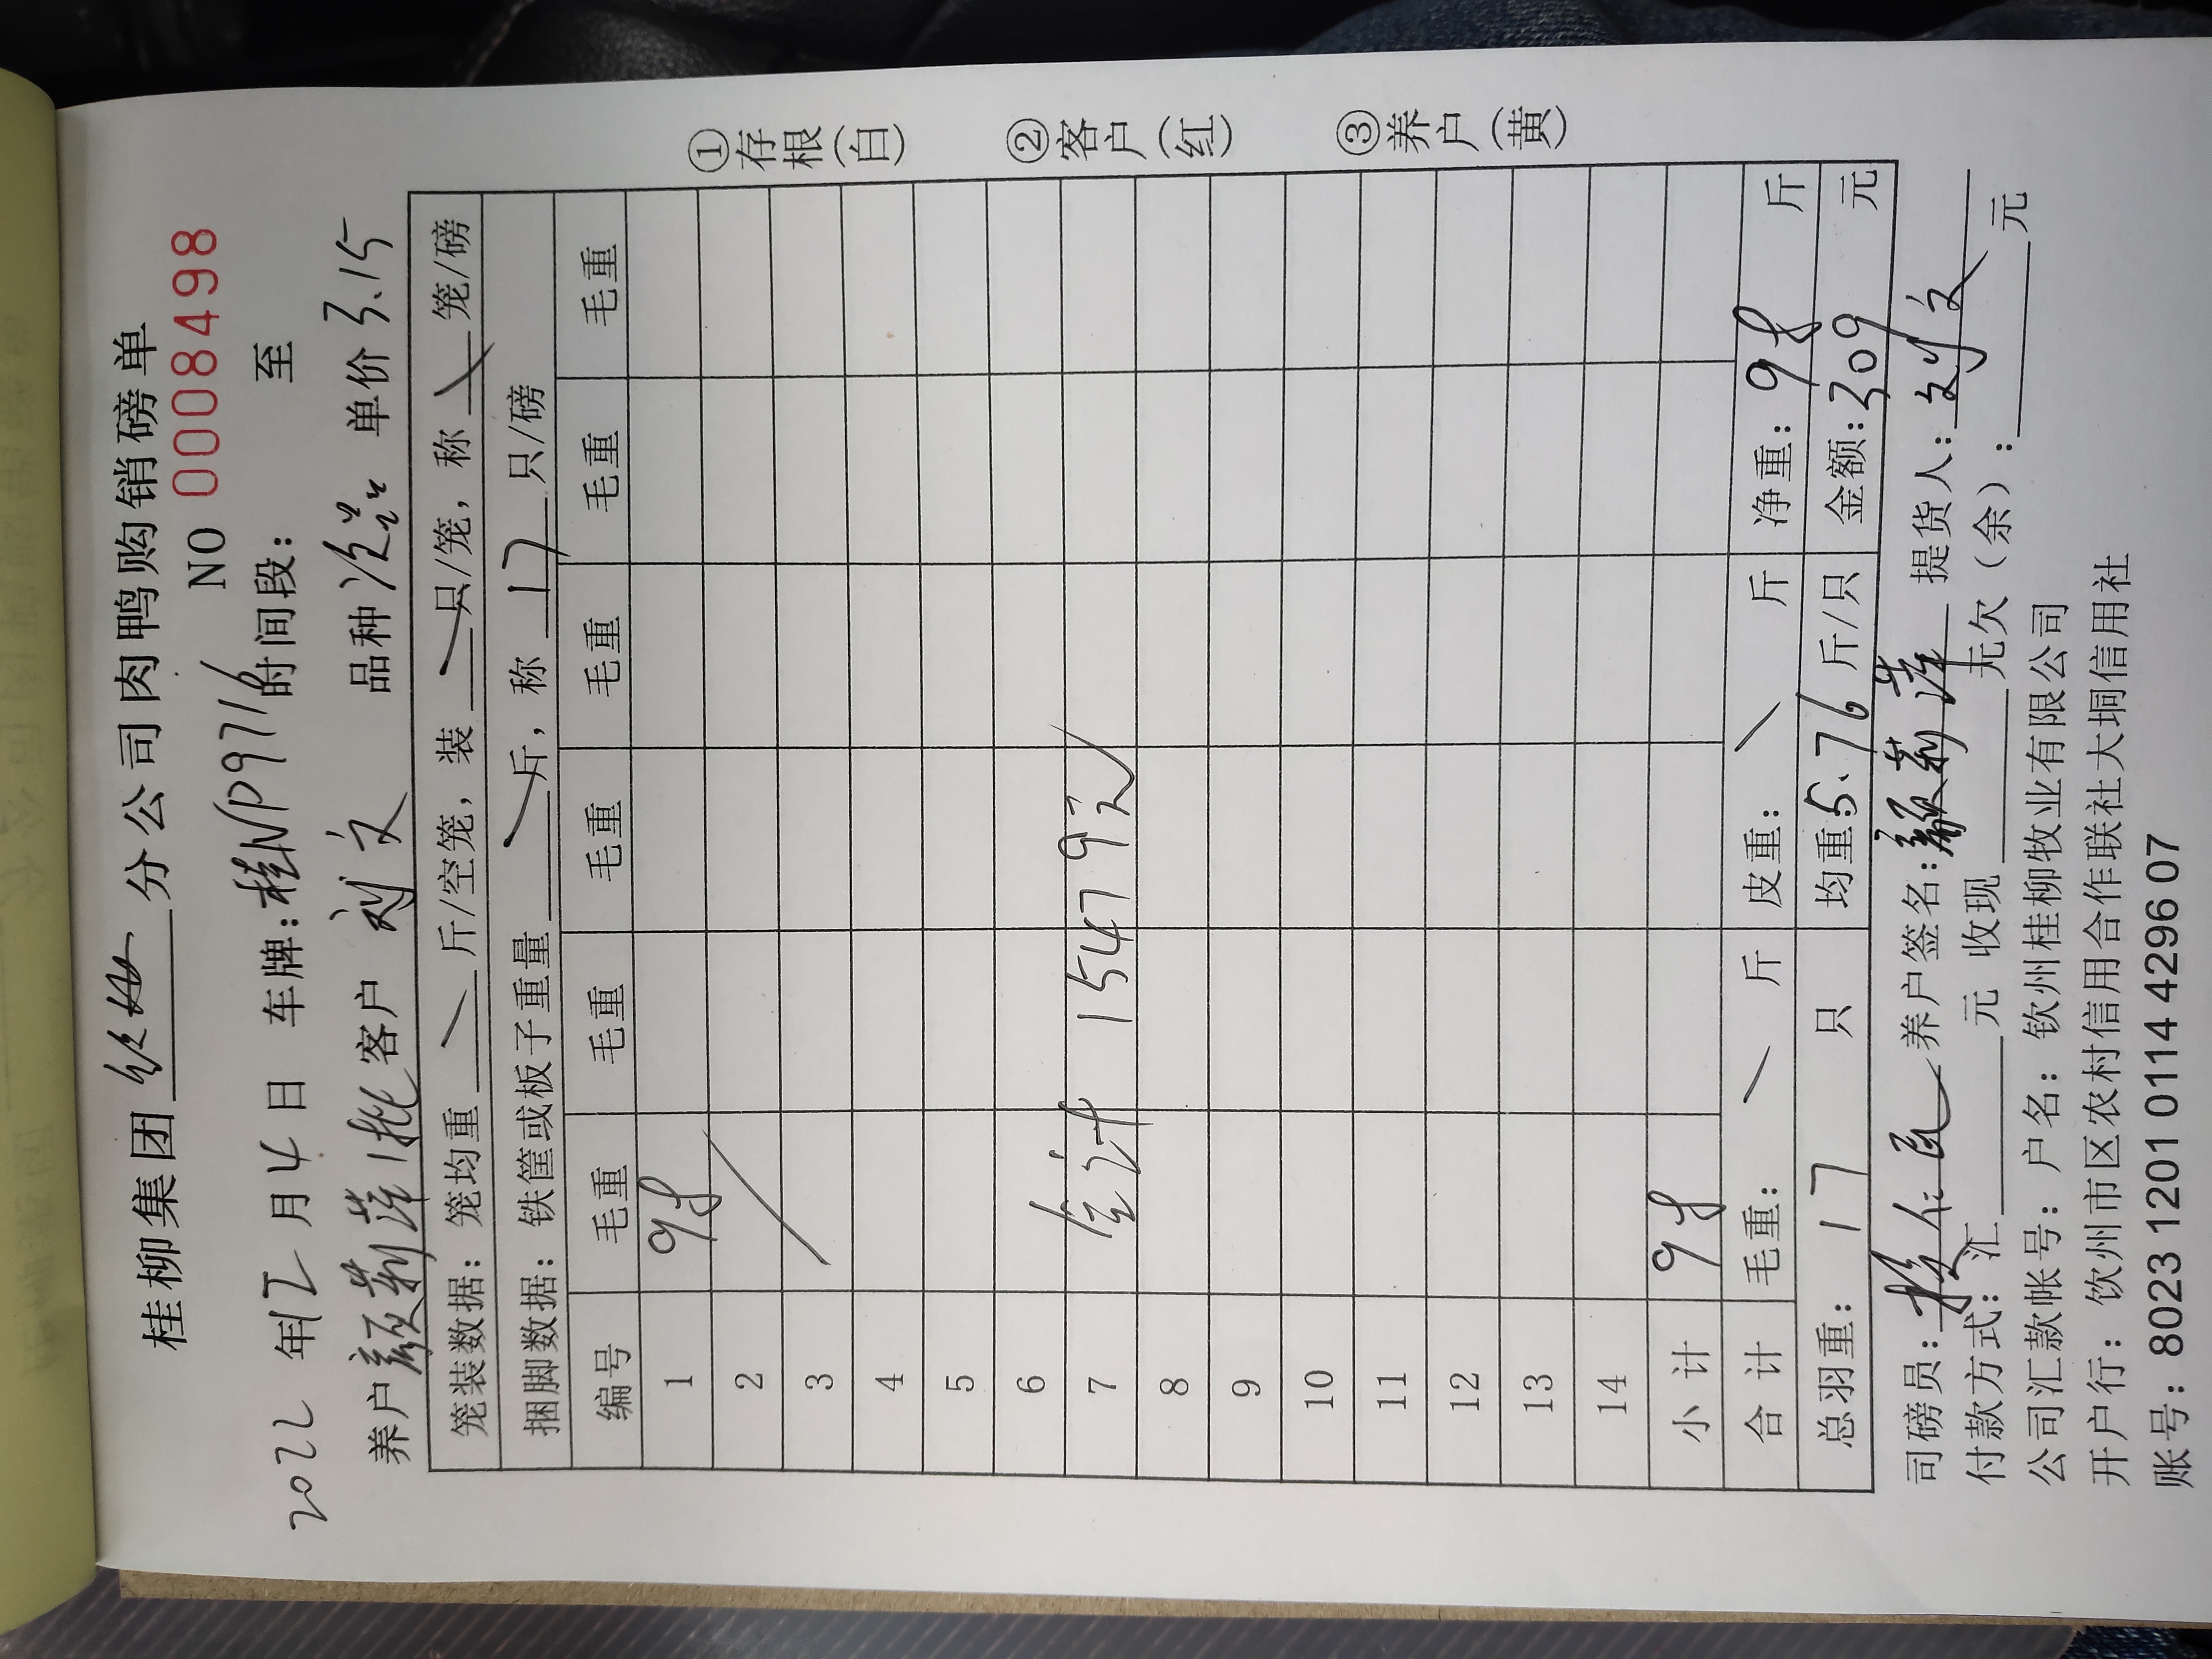 桂柳集团 分公司肉鸭购销磅单
NO 0008498
2022年12月4日 车牌:桂NP9716 时间段: 至
养户 颜莉萍1批 客户 刘文 品种 单价 3.15
笼装数据: 笼均重 斤/空笼, 装 只/笼, 称 笼/磅
捆脚数据: 铁筐或板子重量 斤, 称 17 只/磅
编号 毛重 毛重 毛重 毛重 毛重 毛重
1 98
2
3
4
5
6
7 合计 15479元
8
9
10
11
12
13
14
小计 98
合计 毛重: 斤 皮重: 斤 净重: 98 斤
总羽重: 17 只 均重: 5.76 斤/只 金额: 309 元
司磅员: 养户签名: 颜莉萍 提货人: 刘文
付款方式: 汇 元 收现 元欠(余): 元
公司汇款帐号: 户名: 钦州桂柳牧业有限公司
开户行: 钦州市区农村信用合作联社大垌信用社
账号: 8023 1201 0114 4296 07
①存根(白)
②客户(红)
③养户(黄)